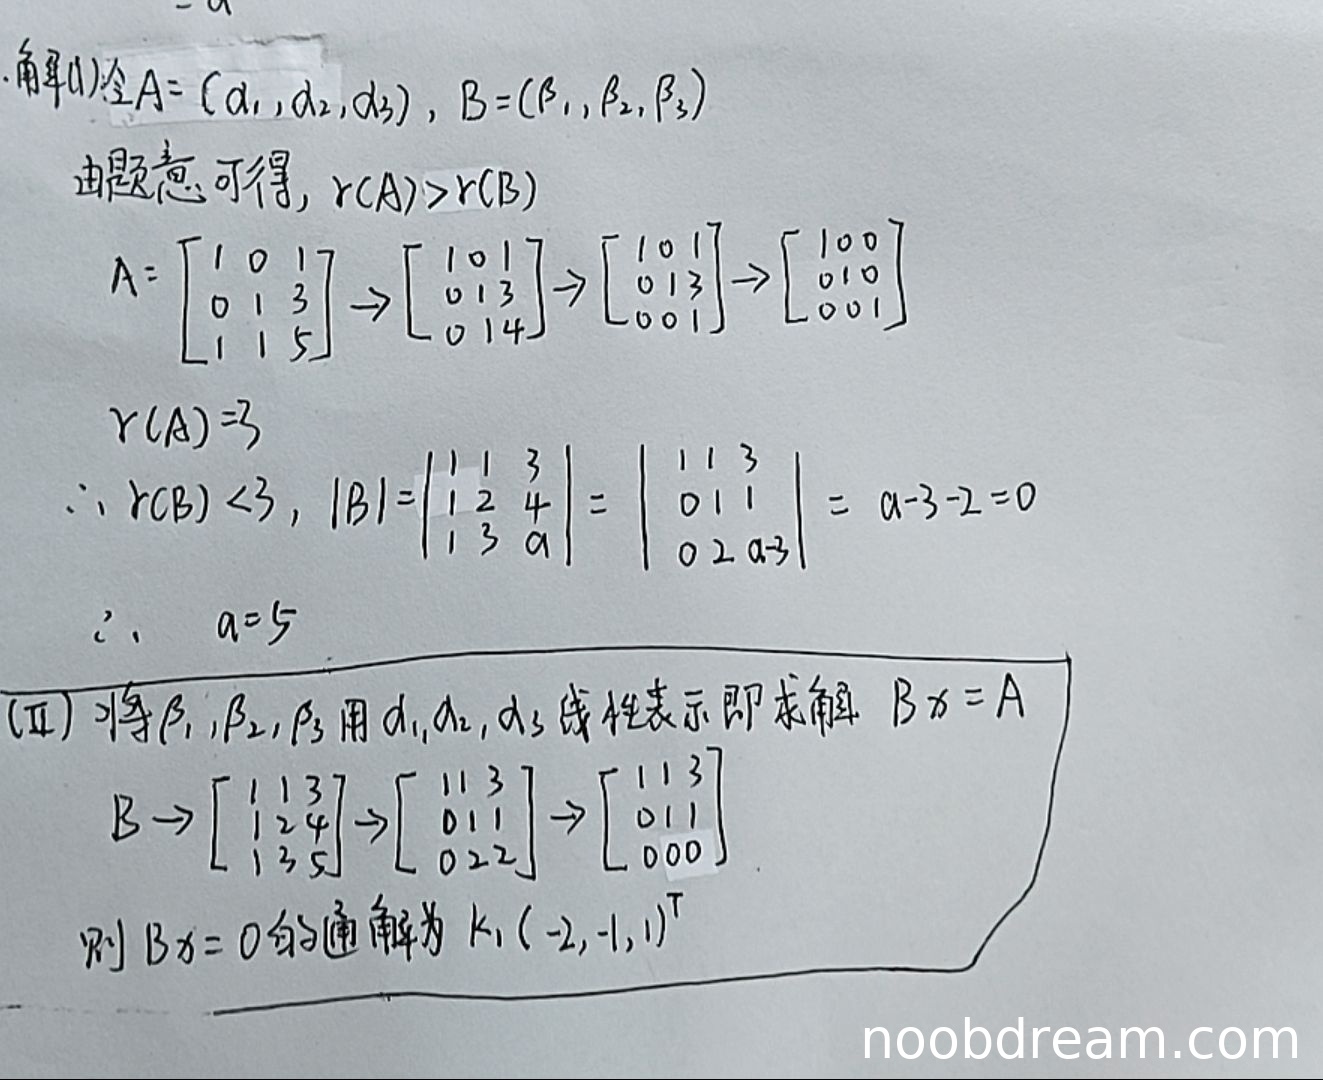 = a
解(1)令A=(α₁,α₂,α₃), B=(β₁,β₂,β₃)
由题意可得, r(A)>r(B)
A=[1 0 1; 0 1 3; 1 1 5]→[1 0 1; 0 1 3; 0 1 4]→[1 0 1; 0 1 3; 0 0 1]→[1 0 0; 0 1 0; 0 0 1]
r(A)=3
∴ r(B)<3, |B|=|1 1 3; 1 2 4; 1 3 a|=|1 1 3; 0 1 1; 0 2 a-3|= a-3-2=0
∴ a=5
(II) 将β₁,β₂,β₃用α₁,α₂,α₃线性表示即求解 Bx=A
B→[1 1 3; 1 2 4; 1 3 5]→[1 1 3; 0 1 1; 0 2 2]→[1 1 3; 0 1 1; 0 0 0]
则 Bx=0的通解为 k₁(-2,-1,1)ᵀ
noobdream.com